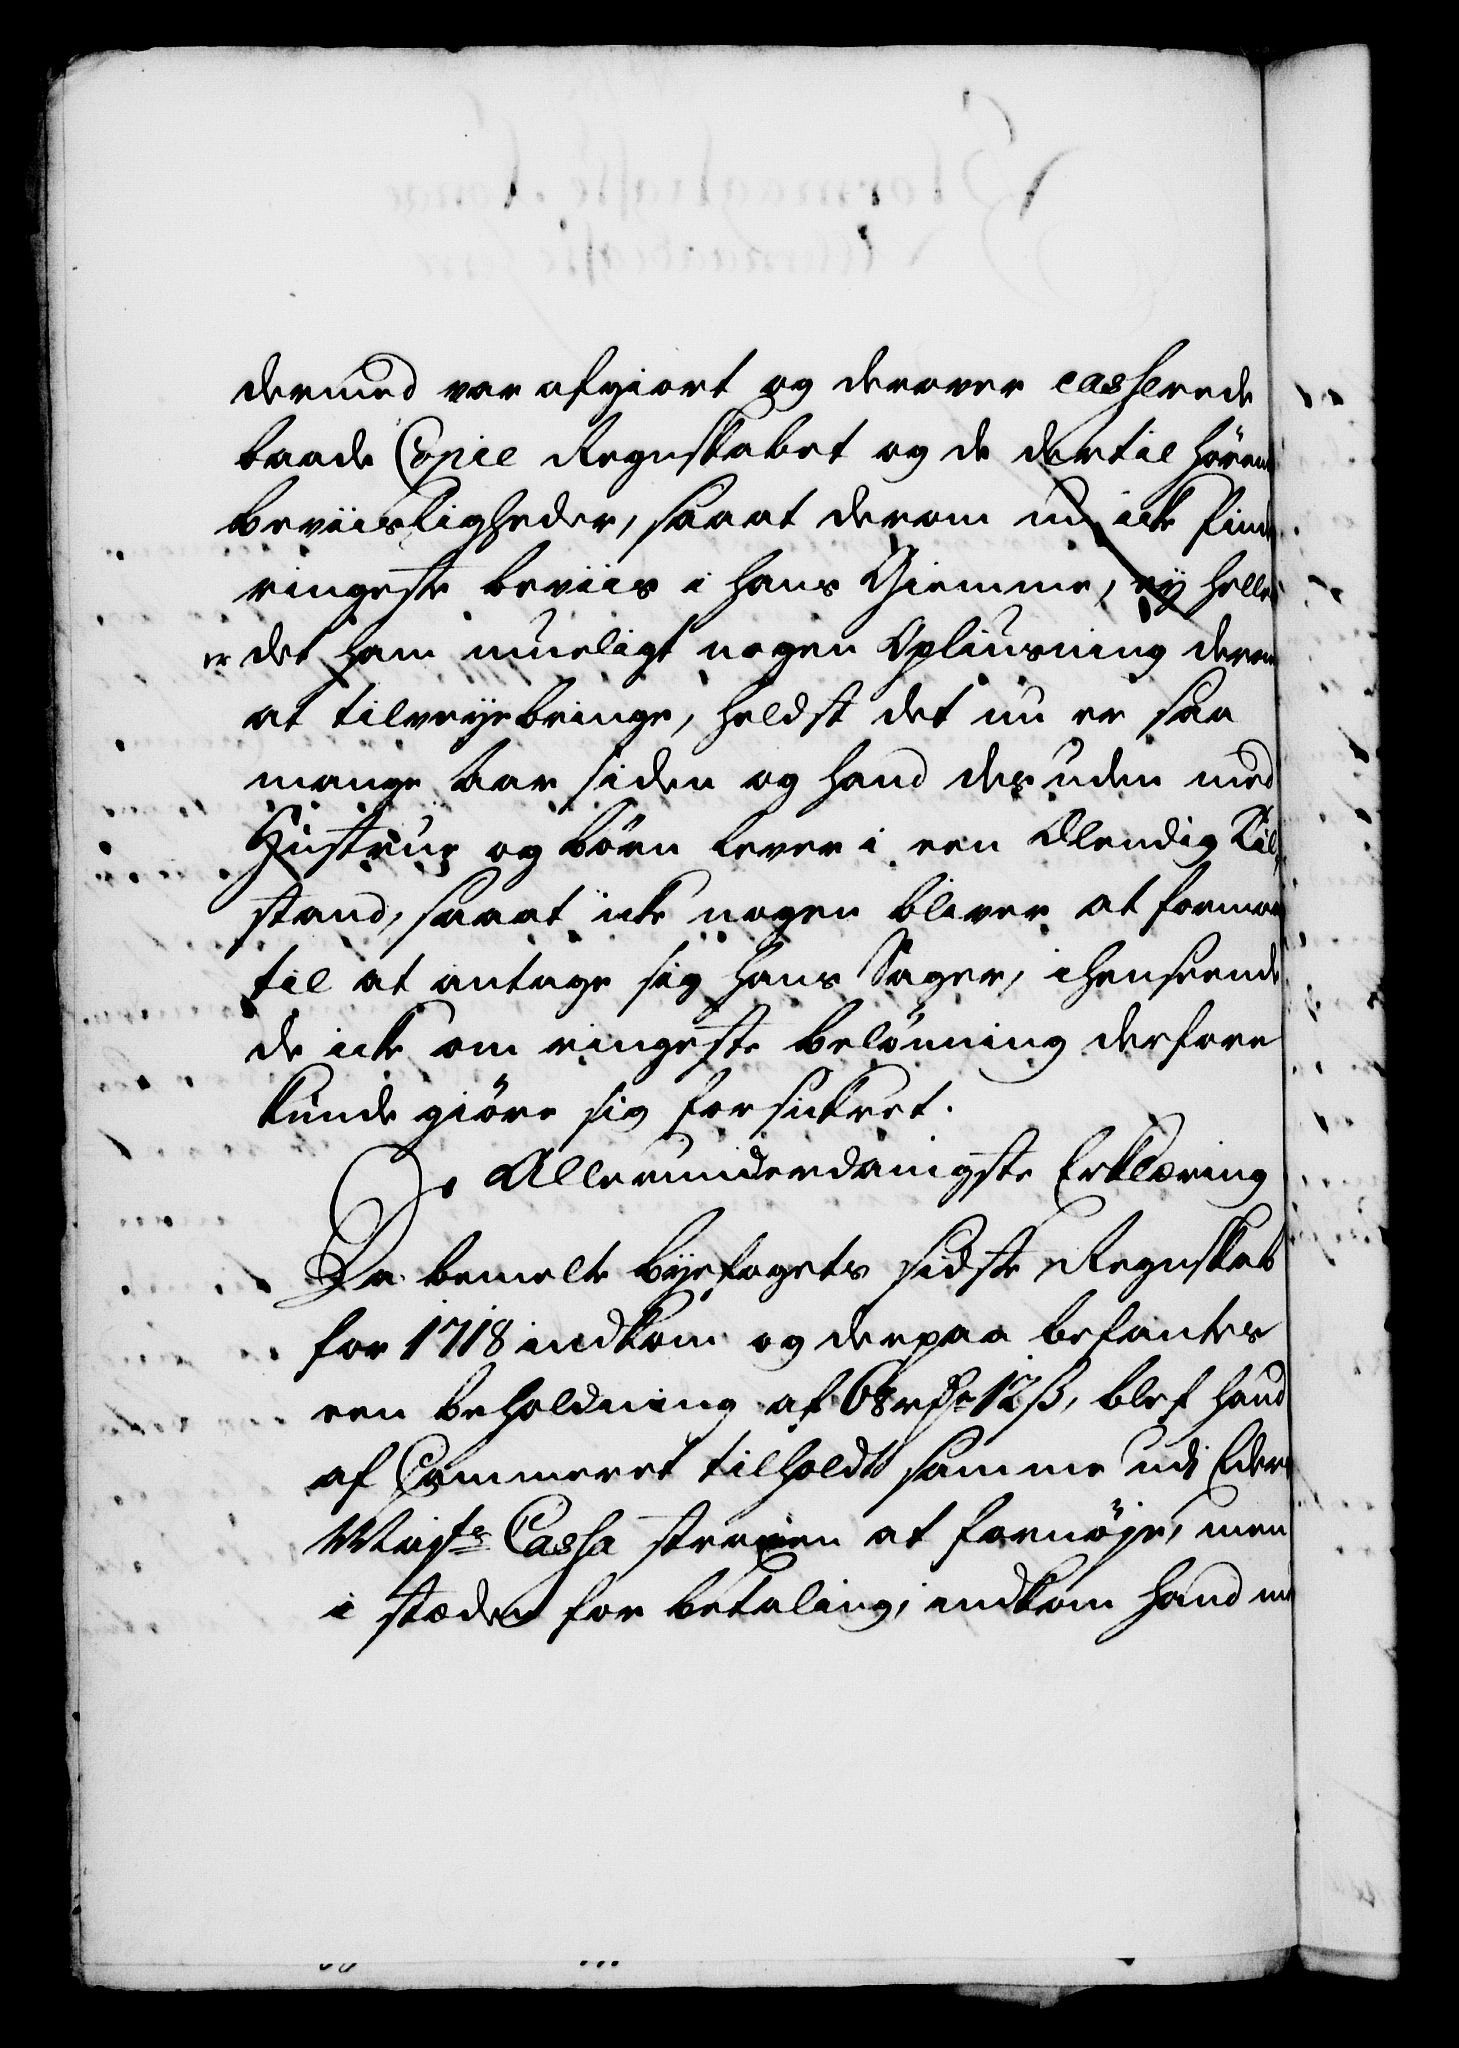 dermed var afgiort og derover casserede
baade Copie Regnskabet og de dertil hörend
beviisligheder, saaat derom nu icke find
ringeste beviis i hans Giemme, ey heller
er det ham mueligt nogen Opliusning derom
at tilveyebringe, heldst det nu er saa
mange Aar siden og hand desuden med
Hustrue og börn lever i een Elendig Til,
stand, saaat icke nogen bliver at formaa
til at antage sig hans Sager, i henseende
de icke om ringeste belönning derfore
kunde giöre sig forsickret.
Allerunderdanigste Erklæring
Da bemelte byefogets sidste Regnskab
for 1718 indkom og derpaa befantes
een beholdning af 68 rdr 12 ß, blef hand
af Cammeret tilholdt samme udi Eders
Mayts Cassa straxen at fornöye, men
i stæden for betaling, indkom hand